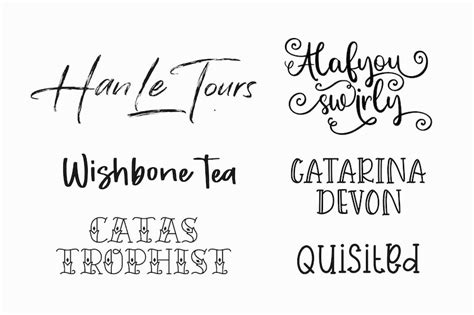 Han Le Tours
Alafyou
swirly
Wishbone Tea
CATARINA
DEVON
CATAS
TROPHIST
QUisiteD